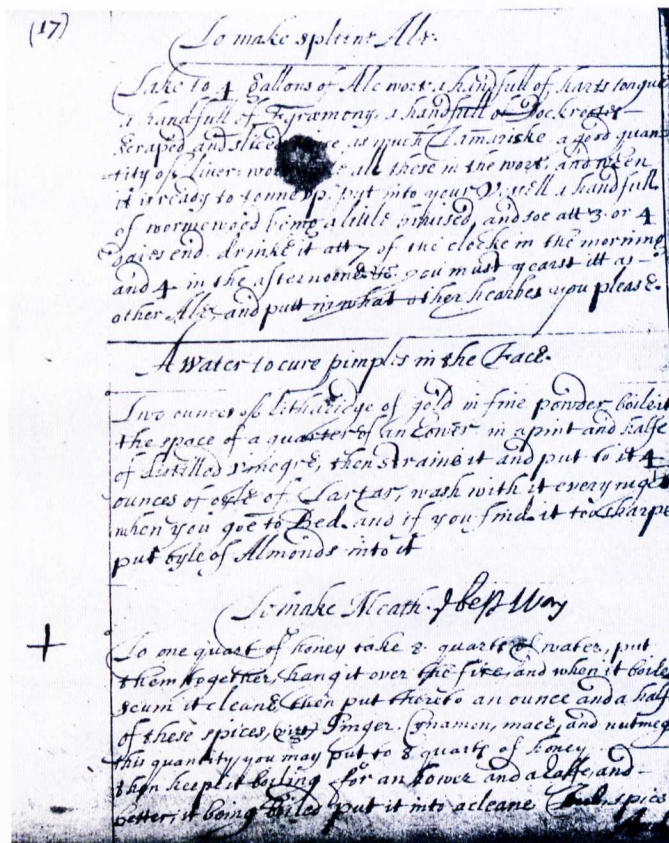 (17)
To make spleene Ale.
Take to 4 gallons of Ale wort a handfull of harts tongue
a handfull of Egremony, a handfull of Dock rootes
scraped and sliced as much Tamariske a good quan
tity of Liver wo all these in the wort, and when
it is ready to tonne up, put into your Vessell a handfull
of wormewood being a little brused, and soe att 3 or 4
daies end drinke it att 7 of the clocke in the morning
and 4 in the afternoone you must yearst itt as
other Ale, and putt in what other hearbes you please.
A Water to cure pimples in the Face.
Two ounces of litharidge of gold in fine powder boile it
the space of a quarter of an hower in a pint and halfe
of distilled vinegre, then straine it and put to it 4
ounces of oyle of Tartar, wash with it every night
when you goe to Bed. and if you find it too sharpe
put oyle of Almonds into it
To make Meath best Way
To one quart of honey take 8 quarts of water, put
them together, hang it over the fire, and when it boiles
scum it cleane then put thereto an ounce and a half
of these spices, Ginger, Cinamon, mace, and nutmeg
this quantity you may put to 8 quarts of honey
then keep it boiling for an hower and a halfe, and
better, it being boiled put it into a cleane spice